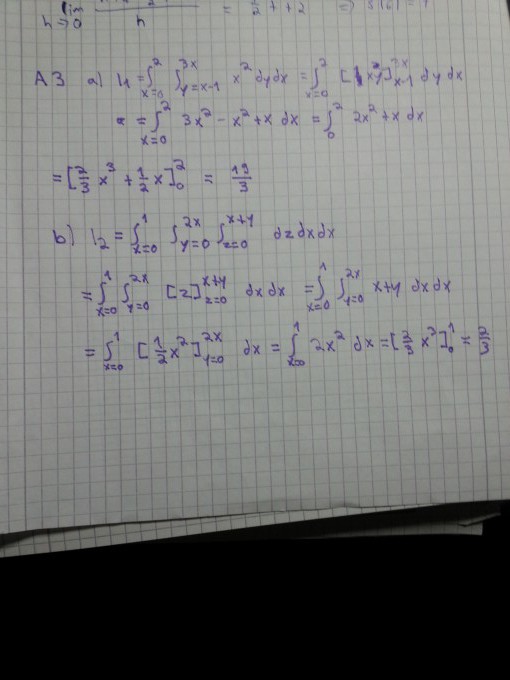 lim h→0 h = ½ t + 2 ⇒
A3 a) I₁ = ∫_{x=0}^{2} ∫_{y=x-1}^{3x} x² dy dx = ∫_{x=0}^{2} [xy]_{x-1}^{3x} dy dx
= ∫_{x=0}^{2} 3x² - x² + x dx = ∫_{0}^{2} 2x² + x dx
= [⅔ x³ + ½ x]_{0}^{2} = 19/3
b) I₂ = ∫_{x=0}^{1} ∫_{y=0}^{2x} ∫_{z=0}^{x+y} dz dx dx
= ∫_{x=0}^{1} ∫_{y=0}^{2x} [z]_{z=0}^{x+y} dx dx = ∫_{x=0}^{1} ∫_{y=0}^{2x} x+y dx dx
= ∫_{x=0}^{1} [½ x²]_{y=0}^{2x} dx = ∫_{x=0}^{1} 2x² dx = [⅔ x³]_{0}^{1} = ⅔